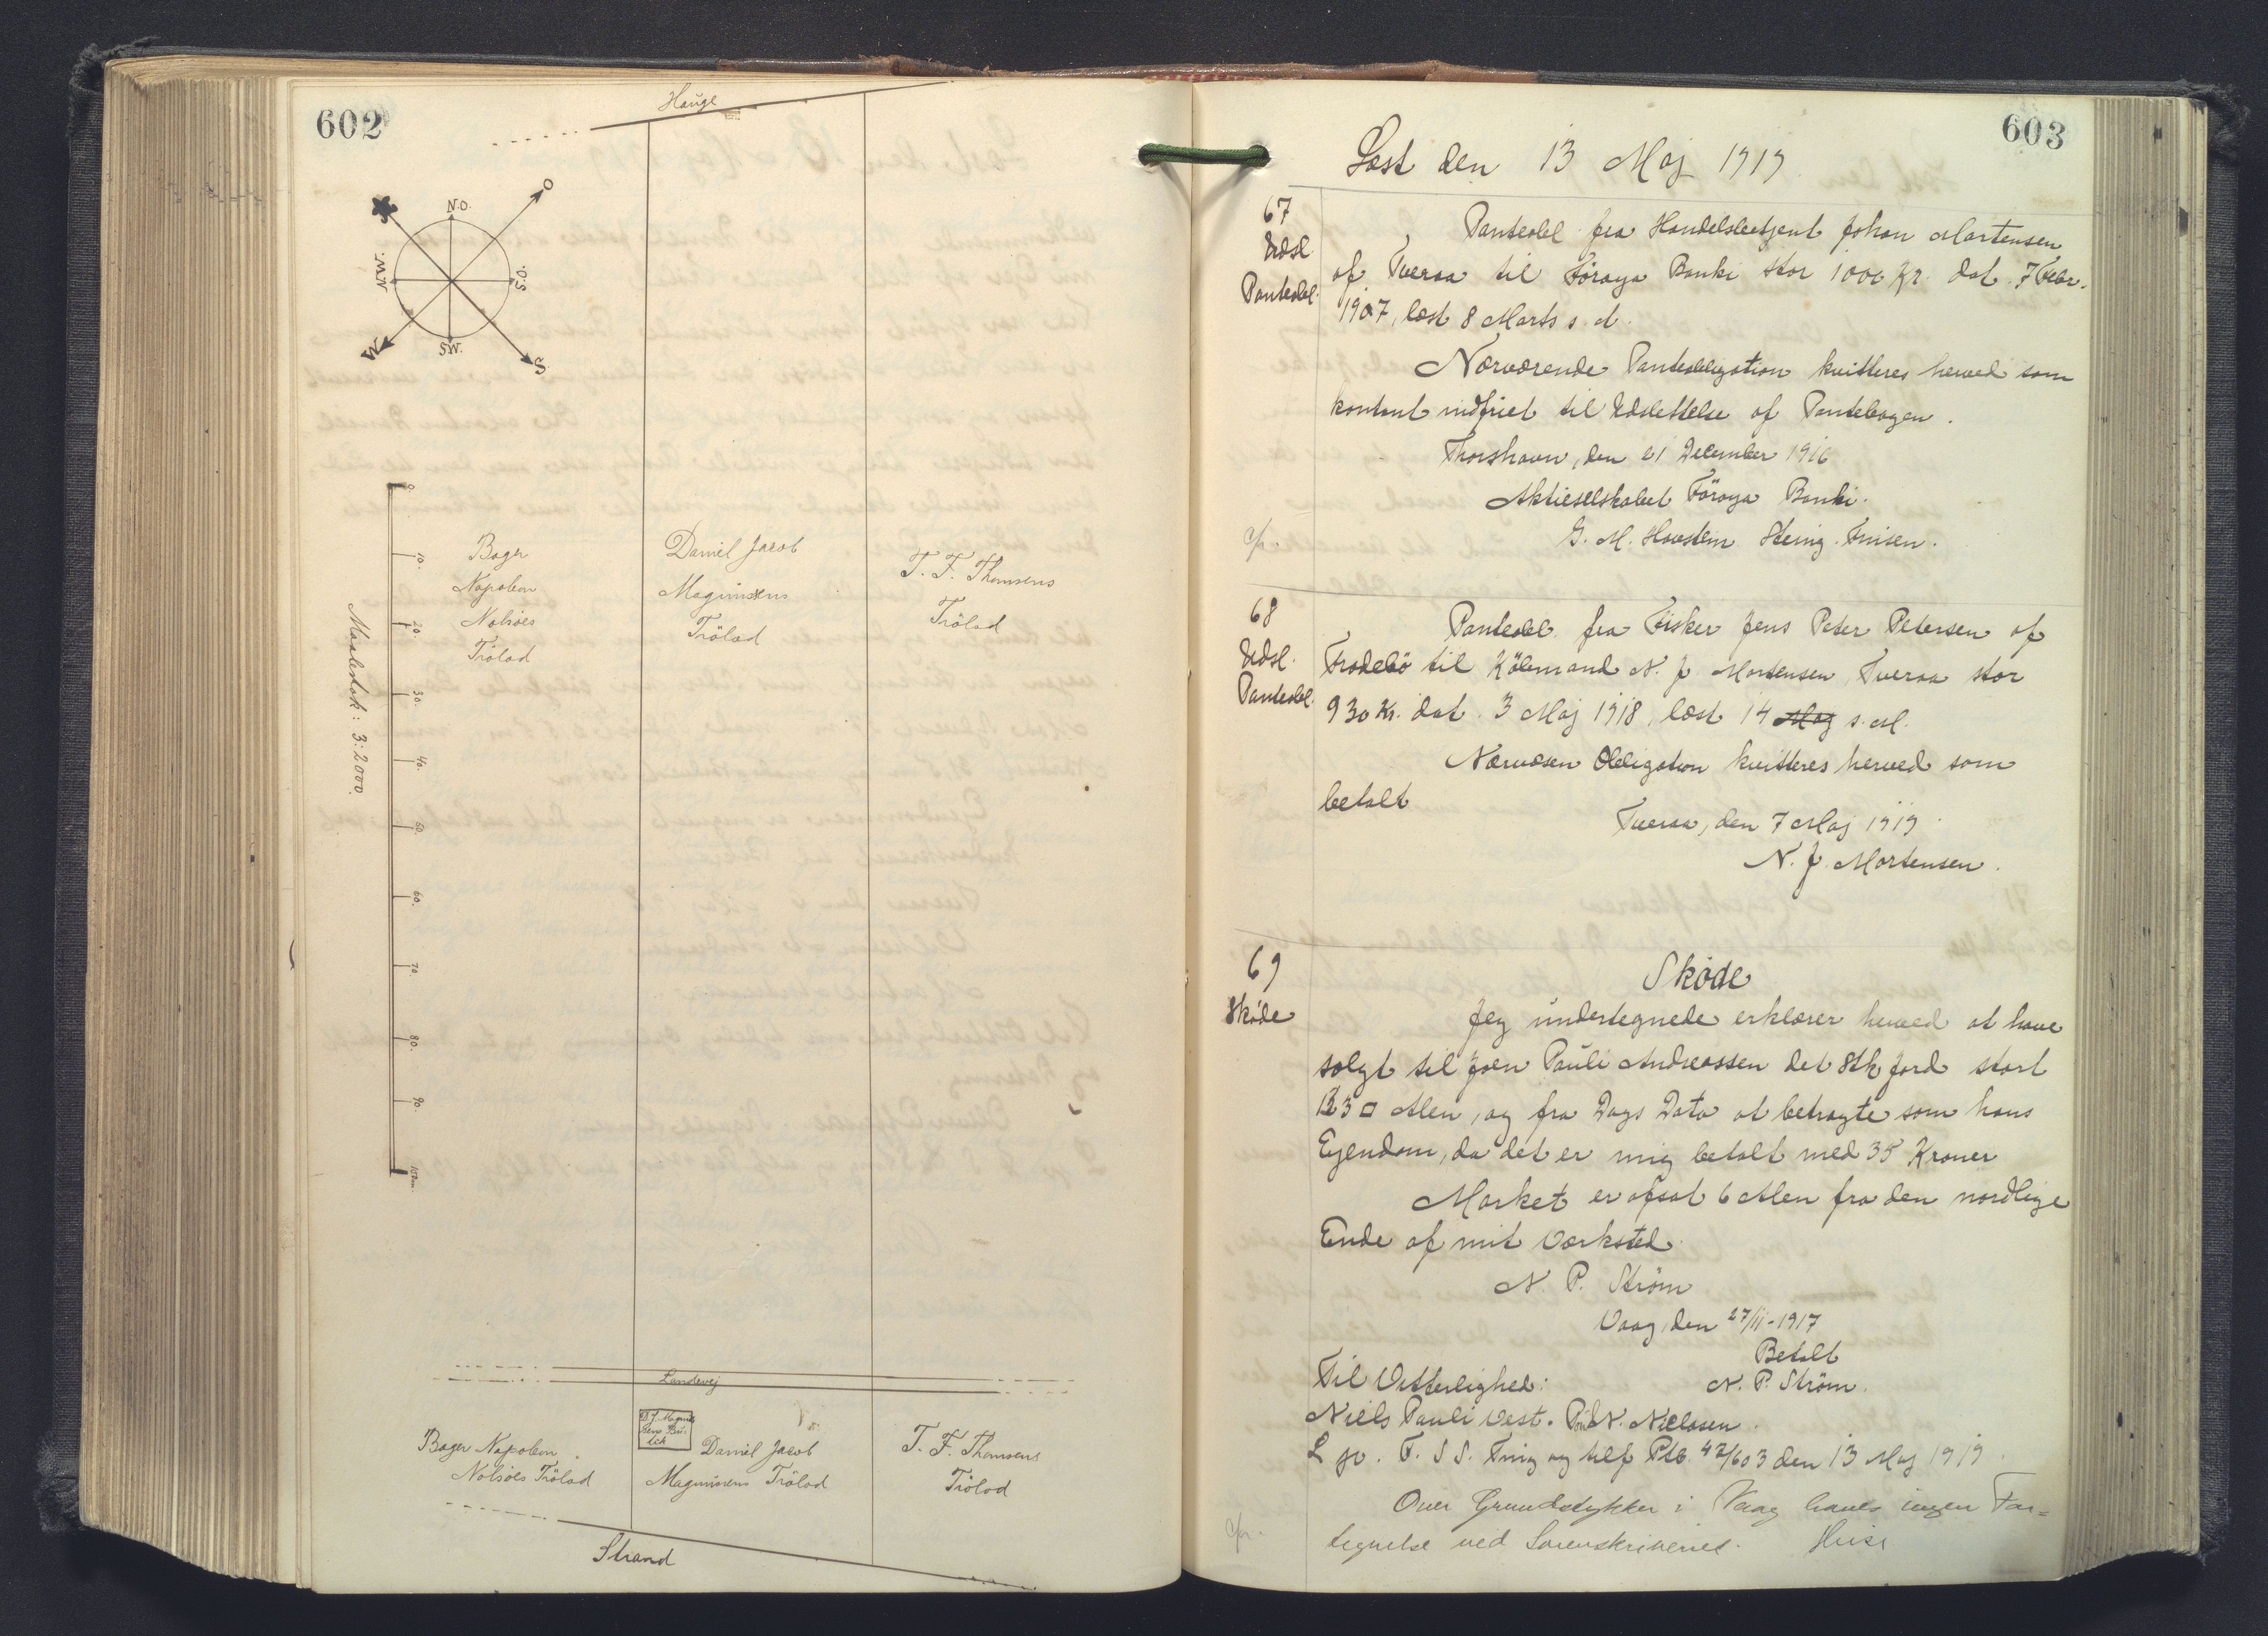 602
Hauge
N.O.
O
S.O.
S
SW.
W
N.W.
0
10.
20.
30.
40.
50.
60.
70.
80.
90.
100m.
Maalestok: 3:2000.
Bager
Napoleon
Nolsöes
Trölad
Daniel Jacob
Magnussens
Trölad
T. F. Thomsens
Trölad
Landevej
Bager Napoleon
Nolsöes Trölad
D. J. Magnus
sens Bu-
tek
Daniel Jacob
Magnussens Trölad
T. F. Thomsens
Trölad
Strand
603
Læst den 13 Maj 1919
67
Udsl
Panteobl.
Panteobl fra Handelsbetjent Johan Mortensen
af Tveraa til Föroya Banki stor 1000 Kr. dat. 7 Febr.
1907, læst 8 Marts s. A.
Nærværende Panteobligation kvitteres herved som
kontant indfriet til Udslettelse af Pantebogen.
Thorshavn, den 21 December 1916
Aktieselskabet Föroya Banki.
68
Udsl.
Panteobl.
Panteobl. fra Fisker Jens Peter Petersen af
Frodebö til Köbmand N. J. Mortensen, Tveraa stor
930 Kr. dat. 3 Maj 1918, læst 14 Maj s. M.
Nærværen Obligation kvitteres herved som
betalt
Tveraa, den 7 Maj 1919.
N. J. Mortensen.
69
Sköde
Sköde
Jeg undertegnede erklærer herved at have
solgt til Joen Pauli Andreassen det Stk Jord stort
123 □ Alen, og fra Dags Dato at betragte som hans
Ejendom, da det er mig betalt med 35 Kroner
Market er afsat 6 Alen fra den nordlige
Ende af mit Værksted.
N. P. Ström
Vaag, den 27/11-1917
Betalt
Til Vitterlighed:
N. P. Ström.
Niels Pauli Vest. Poul N. Nielasen.
L på F. S S. Ting og tilf Ptb. 42/603 den 13 Maj 1919.
Over Grundstykker i Vaag haves ingen For=
tegnelse ved Sorenskriveriet.